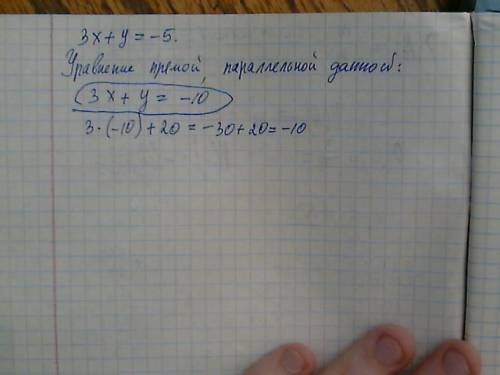 3x + y = -5.
Уравнение прямой, параллельной данной:
3x + y = -10
3·(-10)+20 = -30+20=-10